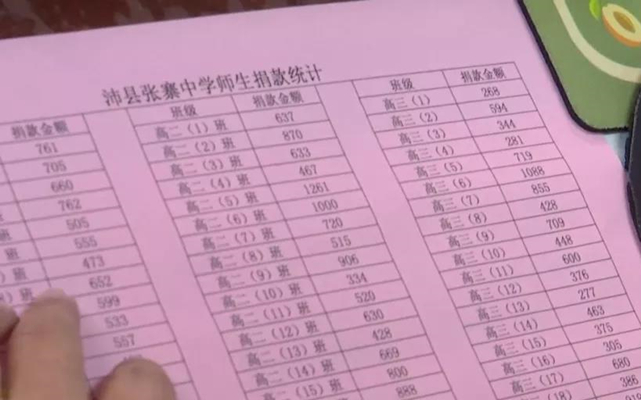 沛县张寨中学师生捐款统计
捐款金额
761
705
660
762
505
555
473
652
599
533
557
班级 捐款金额
高二（1）班 637
高二（2）班 870
高二（3）班 633
高二（4）班 467
高二（5）班 1261
高二（6）班 1000
高二（7）班 720
高二（8）班 515
高二（9）班 906
高二（10）班 334
高二（11）班 520
高二（12）班 630
高二（13）班 428
高二（14）班 669
高二（15）班 800
888
班级 捐款金额
高三（1） 268
高三（2） 594
高三（3） 344
高三（4） 281
高三（5） 719
高三（6） 1088
高三（7） 855
高三（8） 428
高三（9） 709
高三（10） 448
高三（11） 600
高三（12） 376
高三（13） 277
高三（14） 463
高三（15） 375
高三（16） 305
高三（17） 680
（18） 386